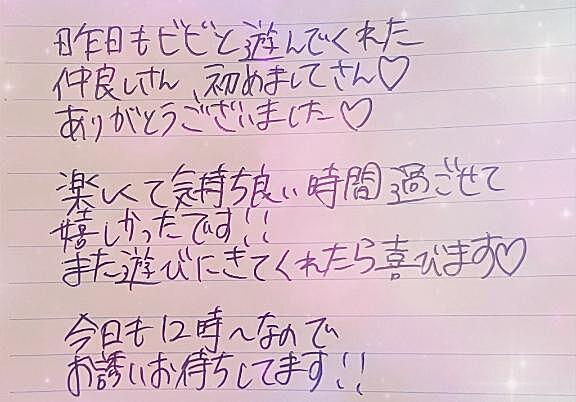 昨日もビビと遊んでくれた
仲良しさん、初めましてさん♡
ありがとうございました♡
楽しくて気持ち良い時間過ごせて
嬉しかったです!!
また遊びにきてくれたら喜びます♡
今日も12時〜なので
お誘いお待ちしてます!!